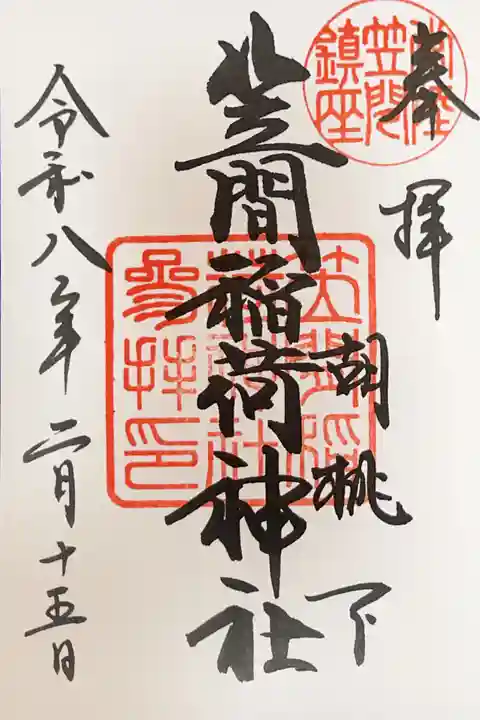 奉拝
胡桃下
常陸
笠間
鎮座
笠間稲荷神社
笠間稲
荷神社
参拝印
令和八年二月十五日